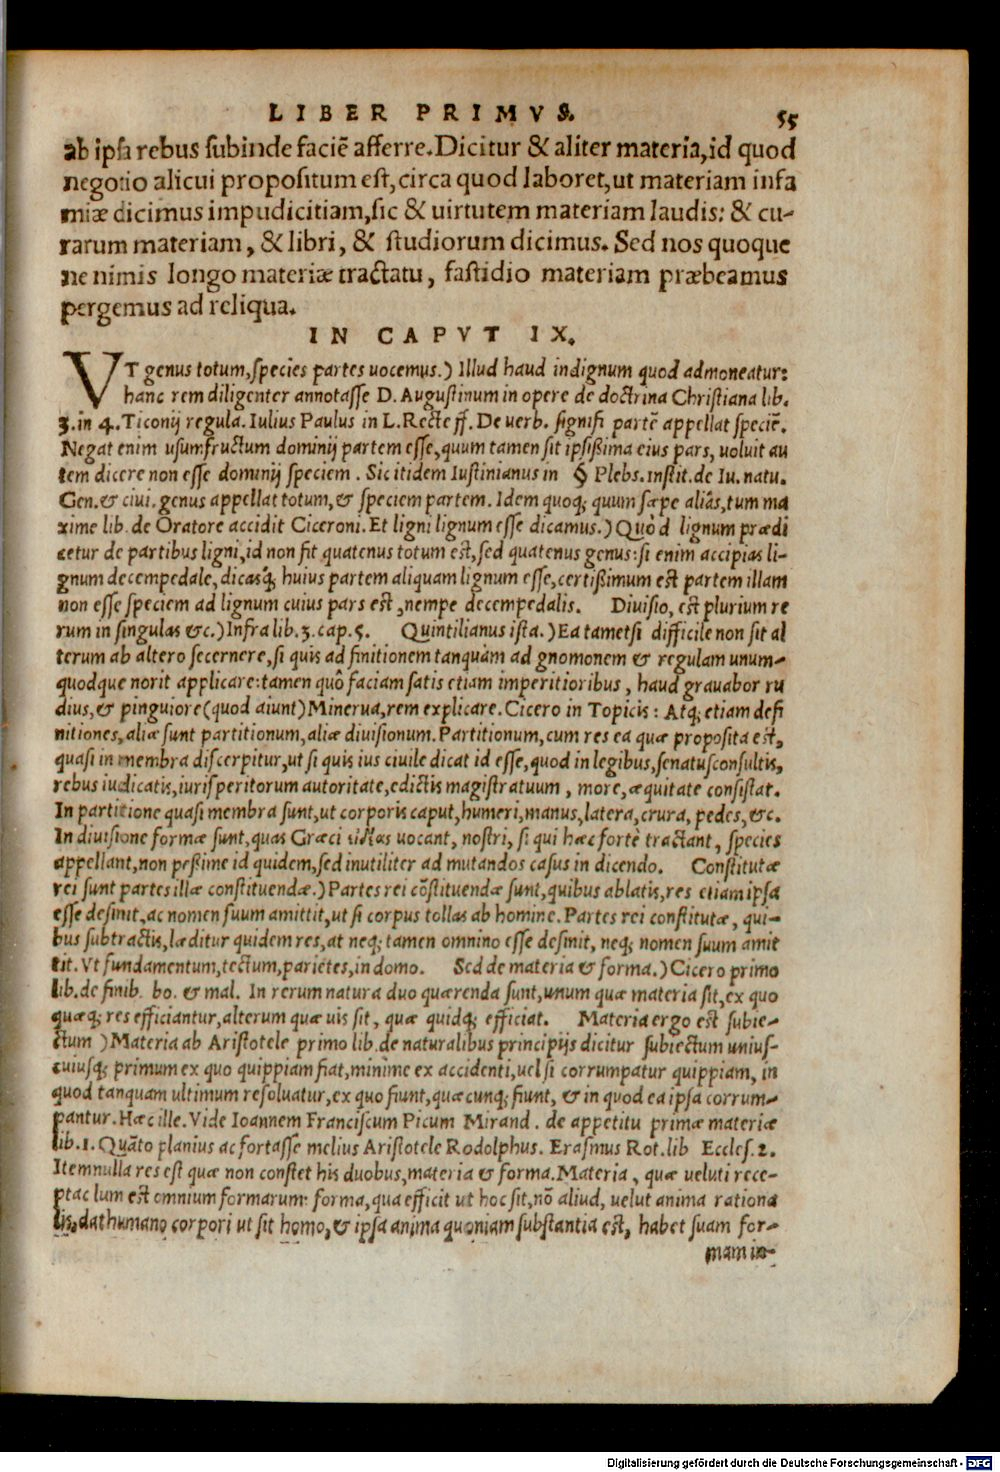 LIBER PRIMVS. 55
ab ipsa rebus subinde faciē afferre. Dicitur & aliter materia, id quod
negotio alicui propositum est, circa quod laboret, ut materiam infa
miæ dicimus impudicitiam, sic & uirtutem materiam laudis: & cu-
rarum materiam, & libri, & studiorum dicimus. Sed nos quoque
ne nimis longo materiæ tractatu, fastidio materiam præbeamus
pergemus ad reliqua.
IN CAPVT IX.
VT genus totum, species partes uocemus.) Illud haud indignum quod admoneatur:
hanc rem diligenter annotasse D. Augustinum in opere de doctrina Christiana lib.
3. in 4. Ticonij regula. Iulius Paulus in L. Recte ff. De uerb. signifi partē appellat speciē.
Negat enim usumfructum dominij partem esse, quum tamen sit ipsißima eius pars, uoluit au
tem dicere non esse dominij speciem. Sic itidem Iustinianus in § Plebs. instit. de Iu. natu.
Gen. & ciui. genus appellat totum, & speciem partem. Idem quoq; quum sæpe aliâs, tum ma
xime lib. de Oratore accidit Ciceroni. Et ligni lignum esse dicamus.) Quòd lignum prædi
cetur de partibus ligni, id non fit quatenus totum est, sed quatenus genus: si enim accipias li-
gnum decempedale, dicasq; huius partem aliquam lignum esse, certißimum est partem illam
non esse speciem ad lignum cuius pars est, nempe decempedalis. Diuisio, est plurium re
rum in singulas &c.) Infra lib. 3. cap. 5. Quintilianus ista.) Ea tametsi difficile non sit al
terum ab altero secernere, si quis ad finitionem tanquàm ad gnomonem & regulam unum-
quodque norit applicare: tamen quô faciam satis etiam imperitioribus, haud grauabor ru
dius, & pinguiore (quod aiunt) Minerua, rem explicare. Cicero in Topicis: Atq; etiam defi
nitiones, aliæ sunt partitionum, aliæ diuisionum. Partitionum, cum res ea quæ proposita est,
quasi in membra discerpitur, ut si quis ius ciuile dicat id esse, quod in legibus, senatusconsultis,
rebus iudicatis, iurisperitorum autoritate, edictis magistratuum, more, æquitate consistat.
In partitione quasi membra sunt, ut corporis caput, humeri, manus, latera, crura, pedes, &c.
In diuisione formæ sunt, quas Græci uocant, nostri, si qui hæc fortè tractant, species
appellant, non peßime id quidem, sed inutiliter ad mutandos casus in dicendo. Constitutæ
rei sunt partes illæ constituendæ.) Partes rei cōstituendæ sunt, quibus ablatis, res etiam ipsa
esse desinit, ac nomen suum amittit, ut si corpus tollas ab homine. Partes rei constitutæ, qui-
bus subtractis, læditur quidem res, at neq; tamen omnino esse desinit, neq; nomen suum amit
tit. Vt fundamentum, tectum, parietes, in domo. Sed de materia & forma.) Cicero primo
lib. de finib. bo. & mal. In rerum natura duo quærenda sunt, unum quæ materia sit, ex quo
quæq; res efficiantur, alterum quæ uis sit, quæ quidq; efficiat. Materia ergo est subie-
ctum) Materia ab Aristotele primo lib. de naturalibus principijs dicitur subiectum unius-
cuiusq; primum ex quo quippiam fiat, minime ex accidenti, uel si corrumpatur quippiam, in
quod tanquam ultimum resoluatur, ex quo fiunt, quæcunq; fiunt, & in quod ea ipsa corrum-
pantur. Hæc ille. Vide Ioannem Franciscum Picum Mirand. de appetitu primæ materiæ
lib. 1. Quāto planius ac fortasse melius Aristotele Rodolphus. Erasmus Rot. lib Eccles. 2.
Item nulla res est quæ non constet his duobus, materia & forma. Materia, quæ ueluti rece-
ptaclum est omnium formarum: forma, qua efficit ut hoc sit, nō aliud, uelut anima rationa
lis, dat humano corpori ut sit homo, & ipsa anima quoniam substantia est, habet suam for-
mam in-
Digitalisierung gefördert durch die Deutsche Forschungsgemeinschaft - DFG